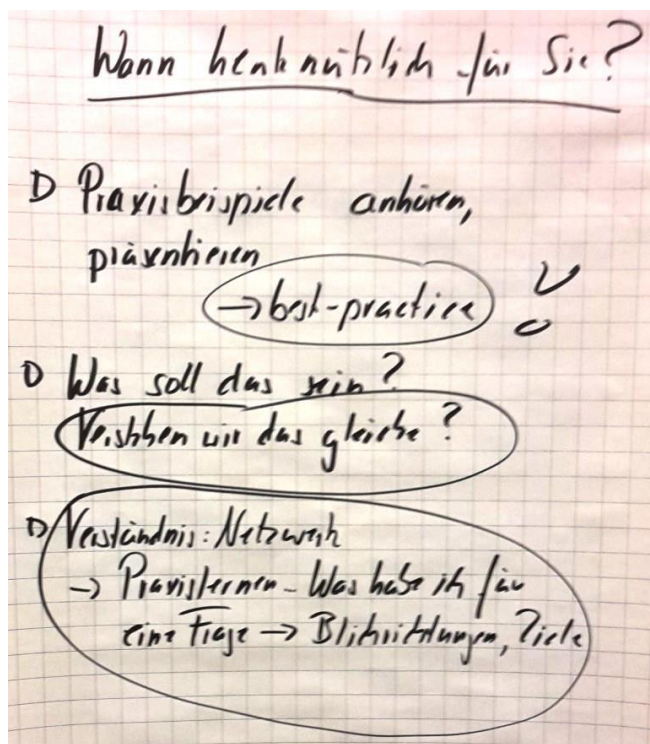 Wann heute nützlich für Sie?
D Praxisbeispiele anhören,
präsentieren
→ best-practice
D Was soll das sein?
Verstehen wir das gleiche?
D Verständnis: Netzwerk
→ Praxislernen - Was habe ich für
eine Frage → Blickrichtungen, Ziele